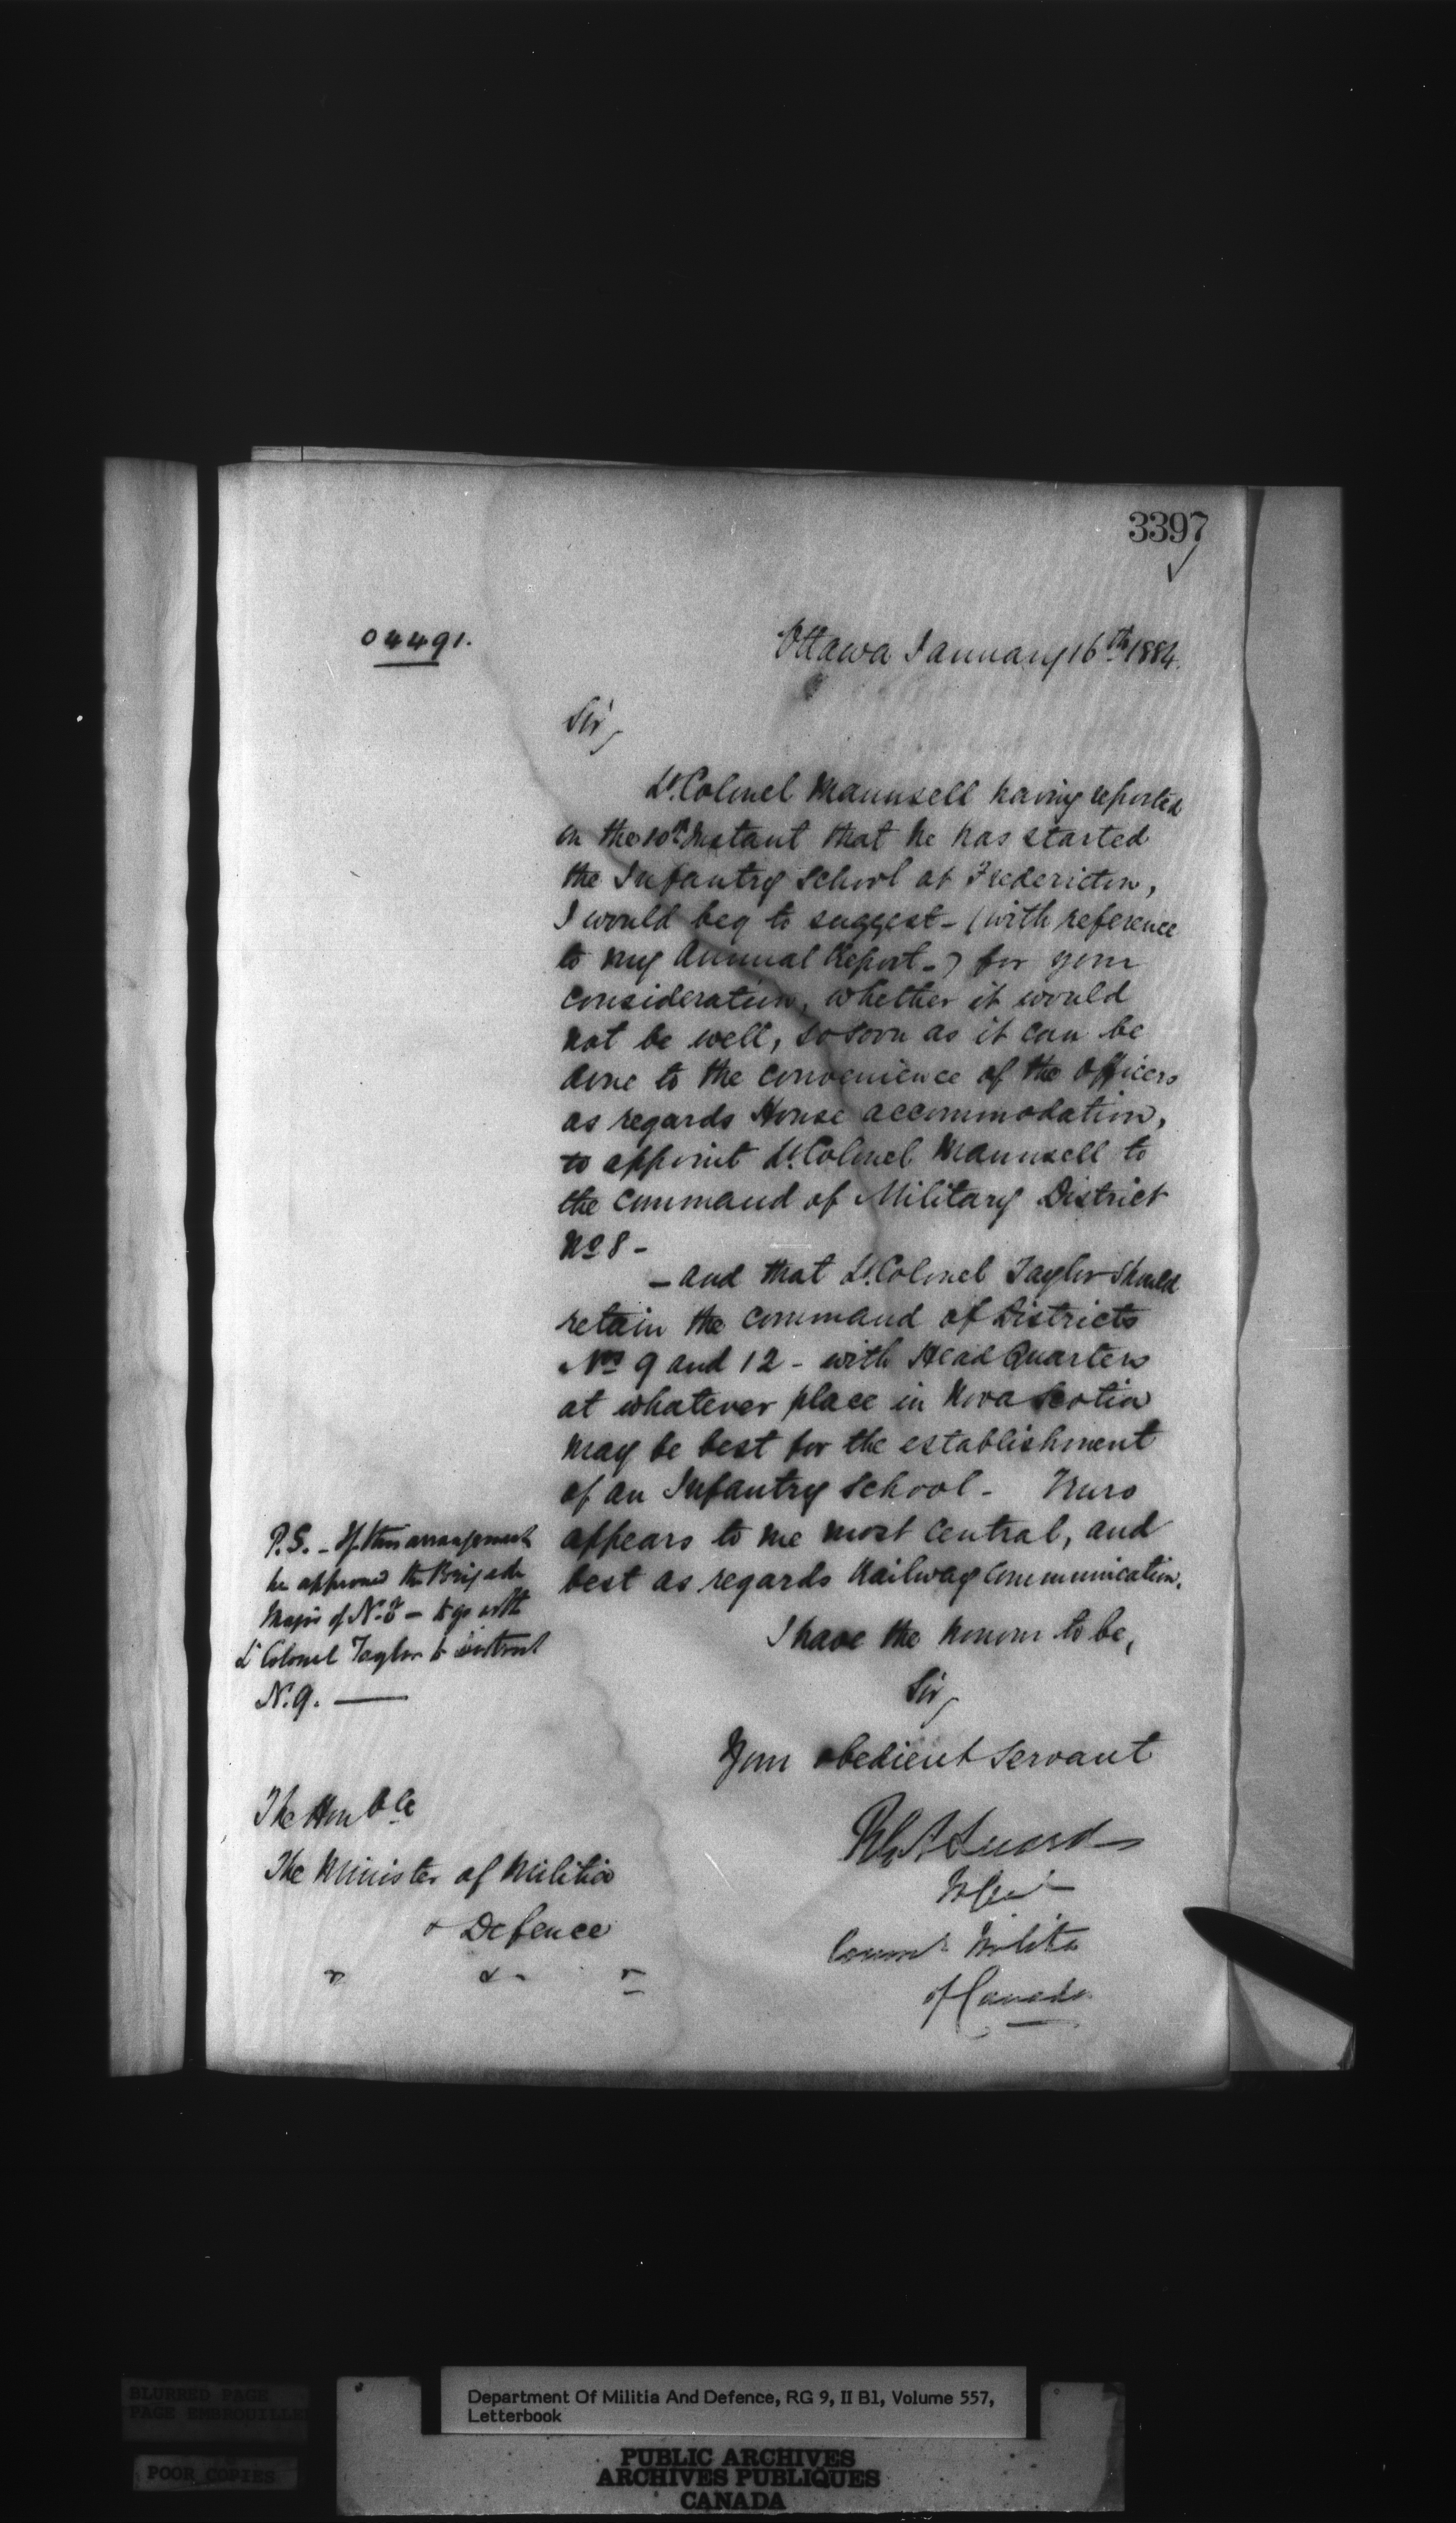 3397
04491.
Ottawa January 16th 1884.
Sir,
Lt. Colonel Maunsell having reported
on the 10th Instant that he has started
the Infantry School at Fredericton,
I would beg to suggest - (with reference
to my Annual Report -) for your
consideration, whether it would
not be well, so soon as it can be
done to the convenience of the Officers
as regards House accommodation,
to appoint Lt. Colonel Maunsell to
the command of Military District
No 8 -
- and that Lt. Colonel Taylor should
retain the command of Districts
Nos 9 and 12 - with Head Quarters
at whatever place in Nova Scotia
may be best for the establishment
of an Infantry School - Truro
appears to me most central, and
best as regards Railway Communication.
I have the honour to be,
Sir,
Your obedient Servant
Luard
M Genl
Commg Militia
of Canada
P.S. - If this arrangement
be approved the Brigade
Major of N. 8 - to go with
Lt Colonel Taylor to District
N. 9. —
The Honble
The Minister of Militia
& Defence
" &- "
BLURRED PAGE
PAGE EMBROUILLE
POOR COPIES
Department Of Militia And Defence, RG 9, II B1, Volume 557,
Letterbook
PUBLIC ARCHIVES
ARCHIVES PUBLIQUES
CANADA